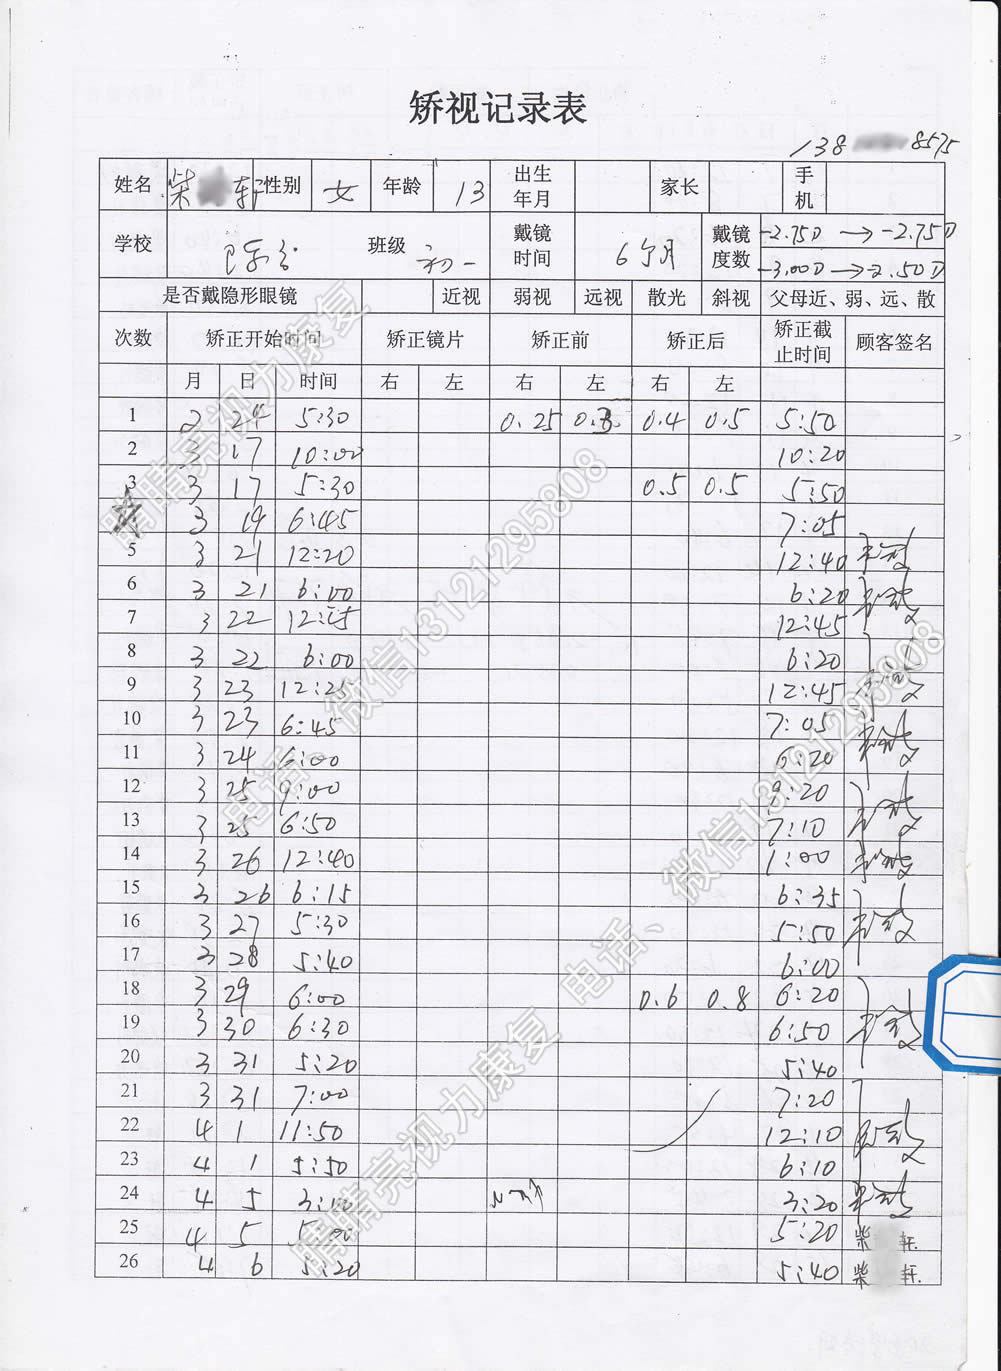 矫视记录表
138 8575
姓名 柴 轩 性别 女 年龄 13 出生年月 家长 手机
学校 班级 初一 戴镜时间 6个月 戴镜度数 -2.75D → -2.75D
-3.00D → -2.50D
是否戴隐形眼镜 近视 弱视 远视 散光 斜视 父母近、弱、远、散
次数 矫正开始时间 矫正镜片 矫正前 矫正后 矫正截止时间 顾客签名
月 日 时间 右 左 右 左 右 左
1 2 24 5:30 0.25 0.3 0.4 0.5 5:50
2 3 17 10:00 10:20
3 3 17 5:30 0.5 0.5 5:50
3 19 6:45 7:05
5 3 21 12:20 12:40
6 3 21 6:00 6:20
7 3 22 12:25 12:45
8 3 22 6:00 6:20
9 3 23 12:25 12:45
10 3 23 6:45 7:05
11 3 24 6:00 6:20
12 3 25 9:00 9:20
13 3 25 6:50 7:10
14 3 26 12:40 1:00
15 3 26 6:15 6:35
16 3 27 5:30 5:50
17 3 28 5:40 6:00
18 3 29 6:00 0.6 0.8 6:20
19 3 30 6:30 6:50
20 3 31 5:20 5:40
21 3 31 7:00 7:20
22 4 1 11:50 12:10
23 4 1 5:50 6:10
24 4 5 3:00 3:20
25 4 5 5:00 5:20 柴 轩
26 4 6 5:20 5:40 柴 轩
睛睛亮视力康复 电话、微信13121295808
睛睛亮视力康复 电话、微信13121295808